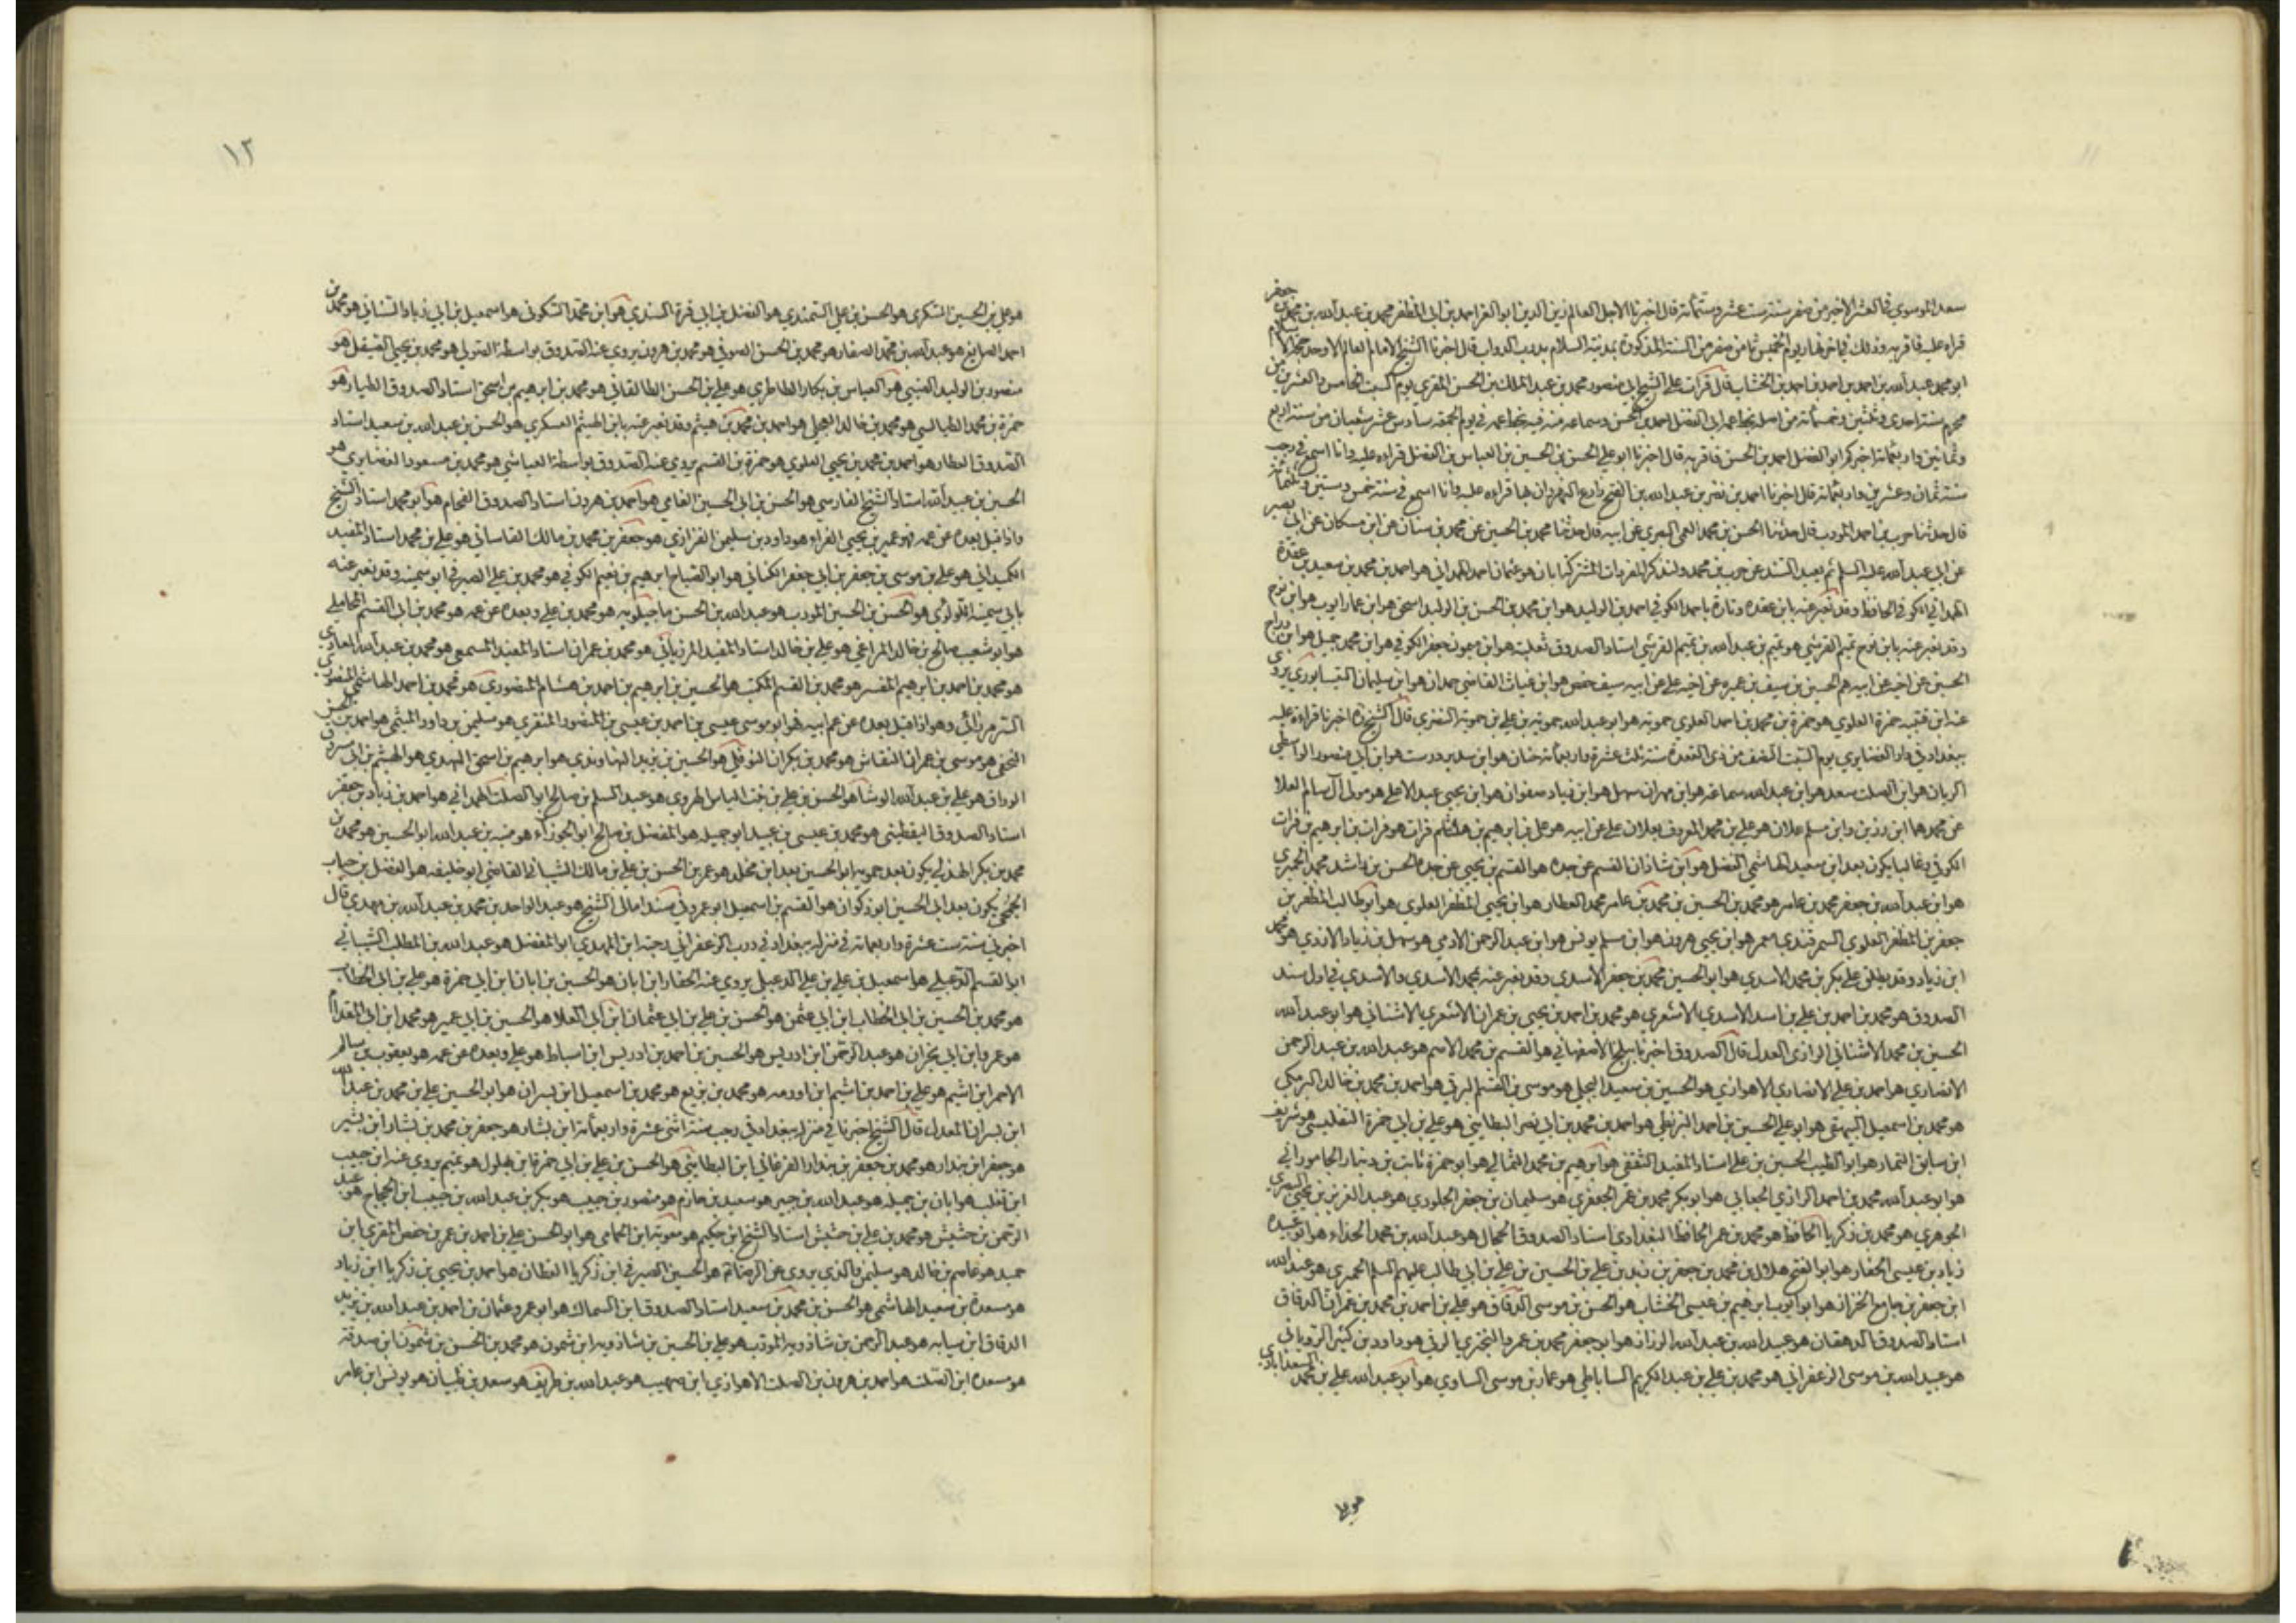 سعد الموسوي في العشر الاخير من صفر سنة ست عشر وستمأئة قال اخبرنا الاجل العالم زين الدين ابو العز احمد بن ابي المظفر محمد بن عبد الله بن محمد بن جعفر
قراءه عليه فاقر به وذلك في اخر نهار يوم الخميس ثامن صفر من السنة المذكورة بمدينة السلام بدرب الدواب قال اخبرنا الشيخ الامام العالم الاوحد حجة الاسلام
ابو محمد عبد الله بن احمد بن احمد بن احمد بن الخشاب قال قرات علي الشيخ ابي منصور محمد بن عبد الملك بن الحسن المقري يوم السبت الخامس والعشرين من
محرم سنة احدي وثلثين وخمسمائة من اصله بخط عمه ابي الفضل احمد بن الحسن وسماعه منه فيه بخط عمه في يوم الجمعة سادس عشر شعبان من سنة اربع
وثمانين واربعمائة اخبركم ابو الفضل احمد بن الحسن فاقر به قال اخبرنا ابو علي الحسن بن الحسين بن العباس بن الفضل قراءه عليه وانا اسمع في رجب
سنة ثمان وعشرين واربعمائة قال اخبرنا احمد بن نصر بن عبد الله بن الفتح ذارع النهروان بها قراءه عليه وانا اسمع في سنة خمس وستين وثلثمائة
قال حدثنا حرب بن احمد المؤدب قال حدثنا الحسن بن محمد العمي البصري عن ابيه قال حدثنا محمد بن الحسين عن محمد بن سنان عن ابن مسكان عن ابي بصير
عن ابي عبد الله عليه السلم ثم يعيد السند عن حرب بن محمد ولنذكر المفردات المشتركة ابان هو عثمان احمد الهمداني هو احمد بن محمد بن سعيد بن عقدة
الهمداني الكوفي الحافظ وقد نعبر عنه بابن عقده وتارة باحمد الكوفي احمد بن الوليد هو ابن محمد بن الحسن بن الوليد اسحق هو ابن عمار ايوب هو ابن نوح
وقد نعبر عنه بابن نوح تميم القرشي هو تميم بن عبد الله بن تميم القرشي استاد الصدوق ثعلبة هو ابن ميمون جعفر الكوفي هو ابن محمد جميل هو ابن دراج
الحسين عن اخيه عن ابيه هم الحسين بن سيف بن عميره عن اخيه علي عن ابيه سيف حفص هو ابن غياث القاضي حمدان هو ابن سليمان النيسابوري يروي
عنه ابن قتيبه حمزة العلوي هو حمزة بن محمد بن احمد العلوي حمويه هو ابو عبد الله حمويه بن علي بن حمويه النضري قال الشيخ ره اخبرنا قراءة عليه
ببغداد في دار الغضايري يوم السبت النصف من ذي القعده سنة ثلث عشرة واربعمائة حنان هو ابن سدير درست هو ابن ابي منصور الواسطي
الريان هو ابن الصلت سعد هو ابن عبد الله سماعة هو ابن مهران سهل هو ابن زياد صفوان هو ابن يحيى عبد الاعلي هو مولى آل سالم العلا
عن محمد هما ابن رزين وابن مسلم علان هو علي بن محمد المعروف بعلان علي عن ابيه هو علي بن ابرهيم بن هاشم فرات هو فرات بن ابرهيم بن فرات
الكوفي وغالبا يكون بعد ابن سعيد الهاشمي الفضل هو ابن شاذان القسم عن جده هو القسم بن يحيى عن جده الحسن بن راشد محمد الحميري
هو ابن عبد الله بن جعفر محمد بن عامر هو محمد بن الحسين بن محمد بن عامر محمد العطار هو ابن يحيى المظفر العلوي هو ابو طالب المظفر بن
جعفر بن المظفر العلوي السمرقندي معمر هو ابن يحيى هرون هو ابن مسلم يونس هو ابن عبد الرحمن الادمي هو سهل بن زياد الازدي هو محمد
ابن زياد وقد يطلق علي بكر بن محمد الاسدي هو ابو الحسين محمد بن جعفر الاسدي وقد نعبر عنه بمحمد الاسدي والاسدي في اول سند
الصدوق هو محمد بن احمد بن علي بن اسد الاسدي الاشعري هو محمد بن احمد بن يحيى بن عمران الاشعري الاشناني هو ابو عبد الله
الحسين بن محمد الاشناني الرازي العدل قال الصدوق اخبرنا ببلخ الاصفهاني هو القسم بن محمد الاصم هو عبد الله بن عبد الرحمن
الانصاري هو احمد بن علي الانصاري الاهوازي هو الحسين بن سعيد البجلي هو موسى بن القسم البرقي هو احمد بن محمد بن خالد البرمكي
هو محمد بن اسمعيل البيهقي هو ابو علي الحسين بن احمد البزنطي هو احمد بن محمد بن ابي نصر البطايني هو علي بن ابي حمزة التفليسي هو شريف
ابن سابق التمار هو ابو الطيب الحسين بن علي استاد المفيد الثقفي هو ابرهيم بن محمد الثمالي هو ابو حمزة ثابت بن دينار الجاموراني
هو ابو عبد الله محمد بن احمد الرازي الجعابي هو ابو بكر محمد بن عمر الجعفري هو سليمان بن جعفر الجلودي هو عبد العزيز بن يحيى البصري
الجوهري هو محمد بن زكريا الحافظ هو محمد بن عمر الحافظ البغدادي استاد الصدوق الحجال هو عبد الله بن محمد الحذاء هو ابو عبيده
زياد بن عيسى الحفار هو ابو الفتح هلال بن محمد بن جعفر بن زيد بن علي بن الحسين بن علي بن ابي طالب عليهم السلم الحميري هو عبد الله
ابن جعفر بن جامع الخزاز هو ابو ايوب ابرهيم بن عيسى الخشاب هو الحسن بن موسى الدقاق هو علي بن احمد بن محمد بن عمران الدقاق
استاد الصدوق الدهقان هو عبيد الله بن عبد الله الرزاز هو ابو جعفر محمد بن عمرو البختري الرقي هو داود بن كثير الروياني
هو عبيد الله بن موسى الزعفراني هو محمد بن علي بن عبد الكريم الساباطي هو عمار بن موسى الساوي هو ابو عبد الله علي بن محمد السعدابادي
هو علي
١٢
هو علي بن الحسين السكري هو الحسن بن علي السمندي هو الفضل بن ابي قرة السندي هو ابن محمد السكوني هو اسمعيل بن ابي زياد السناني هو محمد بن
احمد الصايغ هو عبد الله بن محمد الصفار هو محمد بن الحسن الصوفي هو محمد بن هرون يروي عنه الصدوق بواسطة الصولي هو محمد بن يحيى الصيقل هو
منصور بن الوليد الضبي هو العباس بن بكار الطاطري هو علي بن الحسن الطالقاني هو محمد بن ابرهيم بن اسحق استاد الصدوق الطيار هو
حمزة بن محمد الطيالسي هو محمد بن خالد العجلي هو احمد بن محمد بن هيثم وقد نعبر عنه بابن الهيثم العسكري هو الحسن بن عبد الله بن سعيد استاد
الصدوق العطار هو احمد بن محمد بن يحيى العلوي هو حمزة بن القسم يروي عنه الصدوق بواسطة العياشي هو محمد بن مسعود الغضايري هو
الحسين بن عبد الله استاد الشيخ الفارسي هو الحسن بن ابي الحسين الفامي هو احمد بن هرون استاد الصدوق الفحام هو ابو محمد استاد الشيخ
واذا قيل بعده عن عمه فهو عمير بن يحيى الفراء هو داود بن سليمن الفزاري هو جعفر بن محمد بن مالك القاساني هو علي بن محمد استاد المفيد
الكميداني هو علي بن موسى بن جعفر بن ابي جعفر الكناني هو ابو الصباح ابرهيم بن نعيم الكوفي هو محمد بن علي الصيرفي ابو سمينه وقد نعبر عنه
بابي سمينه اللولوئي هو الحسن بن الحسين المؤدب هو عبد الله بن الحسن ماجيلويه هو محمد بن علي وبعده عن عمه هو محمد بن ابي القسم المحاملي
هو ابو شعيب صالح بن خالد المراغي هو علي بن خالد استاد المفيد المرزباني هو محمد بن عمران استاد المفيد المسمعي هو محمد بن عبد الله المعاذي
هو محمد بن احمد بن ابرهيم المفسر هو محمد بن القسم المكتب هو الحسين بن ابرهيم بن احمد بن هشام المنصوري هو محمد بن احمد الهاشمي المنصوري
السرمرزائي وهو اذا قيل بعده عن عم ابيه فهو ابو موسى عيسى بن احمد بن عيسى بن المنصور المنقري هو سليمن بن داود الميثمي هو احمد بن الحسن
النخعي هو موسى بن عمران النقاش هو محمد بن بكران النوفلي هو الحسين بن يزيد النهاوندي هو ابرهيم بن اسحق النهدي هو الهيثم بن ابي مسروق
الوراق هو علي بن عبد الله الوشا هو الحسن بن علي بن بنت الياس الهروي هو عبد السلم بن صالح ابو الصلت الهمداني هو احمد بن زياد بن جعفر
استاد الصدوق اليقطيني هو محمد بن عيسى بن عبيد ابو جميله هو المفضل بن صالح ابو الجوزاء هو منبه بن عبد الله ابو الحسين هو محمد بن
محمد بن بكر الهذلي يكون بعد حمويه ابو الحسين بعد ابن مخلد هو عمر بن الحسن بن علي بن مالك الشيباني القاضي ابو خليفه هو الفضل بن حباب
الجمحي يكون بعد ابي الحسين ابو ذكوان هو القسم بن اسمعيل ابو عمرو في سند امالي الشيخ هو عبد الواحد بن محمد بن عبد الله بن مهدي قال
اخبرني سنة ست عشرة واربعمائة في منزله ببغداد في درب الزعفراني رحبة ابن المهدي ابو المفضل هو عبد الله بن المطلب الشيباني
ابو القسم الدعبلي هو اسمعيل بن علي بن علي الدعبل يروي عنه الحفار ابن ابان هو الحسين بن ابان ابن ابي حمزة هو علي بن ابي الخطاب
هو محمد بن الحسين بن ابي الخطاب ابن ابي عثمن هو الحسن بن علي بن ابي عثمان ابن ابي العلا هو الحسين بن ابي عمير هو محمد ابن ابي المقدام
هو عمرو ابن ابي نجران هو عبد الرحمن ابن ادريس هو الحسين بن احمد بن ادريس ابن اسباط هو علي وبعده عن عمه هو يعقوب بن سالم
الاحمر ابن اشيم هو علي بن احمد بن اشيم ابن اورمه هو محمد بن بزيع هو محمد بن اسمعيل ابن بسران هو ابو الحسين علي بن محمد بن عبد الله
ابن بسران المعدل قال الشيخ اخبرنا في منزله ببغداد في رجب سنة اثني عشرة واربعمائة ابن بشار هو جعفر بن محمد بن بشار ابن بشير
هو جعفر ابن بندار هو محمد بن جعفر بن بندار الفرغاني ابن البطايني هو الحسن بن علي بن ابي حمزة ابن بهلول هو تميم يروي عنه ابن حبيب
ابن تغلب هو ابان بن جبله هو عبد الله بن جبير هو سعيد بن حازم هو منصور بن حبيب هو بكر بن عبد الله بن حبيب ابن الحجاج هو عبد
الرحمن بن حشيش هو محمد بن علي بن حشيش استاد الشيخ ابن حكيم هو معوية ابن الحمامي هو ابو الحسن علي بن احمد بن عمر بن حفص المقري ابن
حميد هو عاصم بن خالد هو سليمن والذي يروي عن الرضا ع هو الحسين الصيرفي ابن زكريا القطان هو احمد بن يحيى بن زكريا ابن زياد
هو مسعدة بن سعيد الهاشمي هو الحسن بن محمد بن سعيد استاد الصدوق ابن السماك هو ابو عمرو عثمان بن احمد بن عبد الله بن يزيد
الدقاق ابن سيابه هو عبد الرحمن بن شاذويه المؤدب هو علي بن الحسين بن شاذويه ابن شمون هو محمد بن الحسن بن شمون ابن صدقة
هو مسعده ابن الصلت هو احمد بن هرون بن الصلت الاهوازي ابن صهيب هو عبد الله بن طريف هو سعد بن ظبيان هو يونس ابن عامر